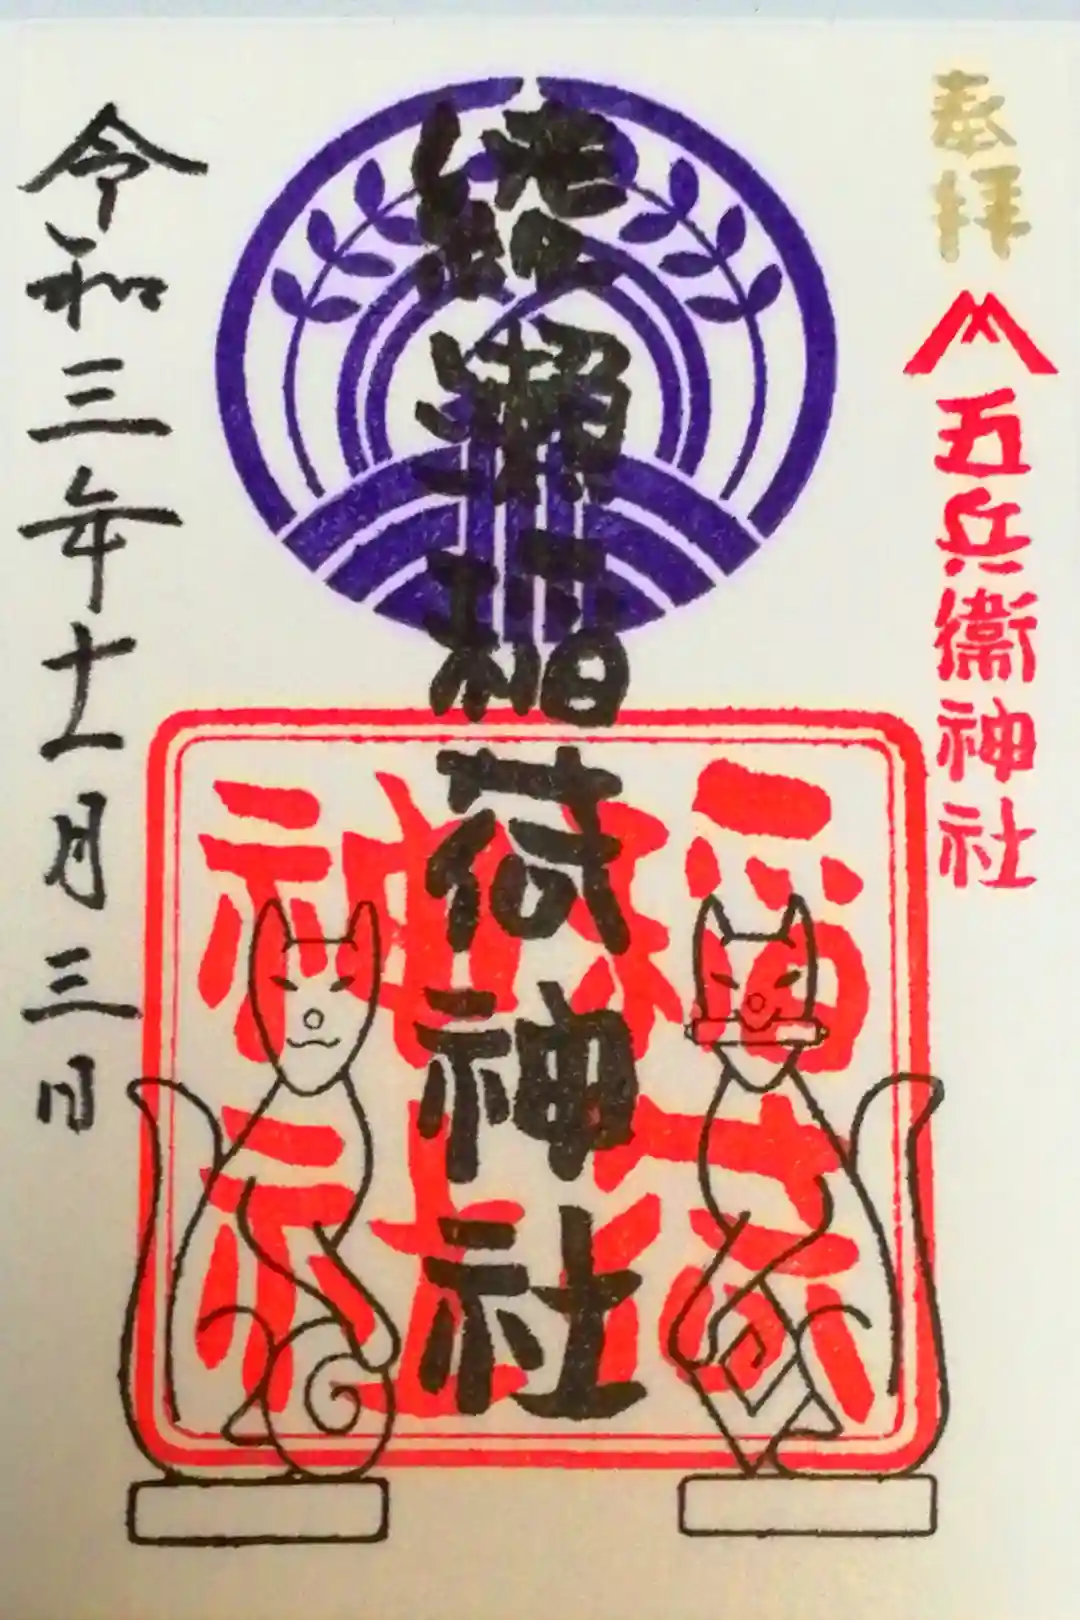 奉拝
五兵衛神社
綾瀬稲荷神社
稲荷
神社
令和三年十一月三日